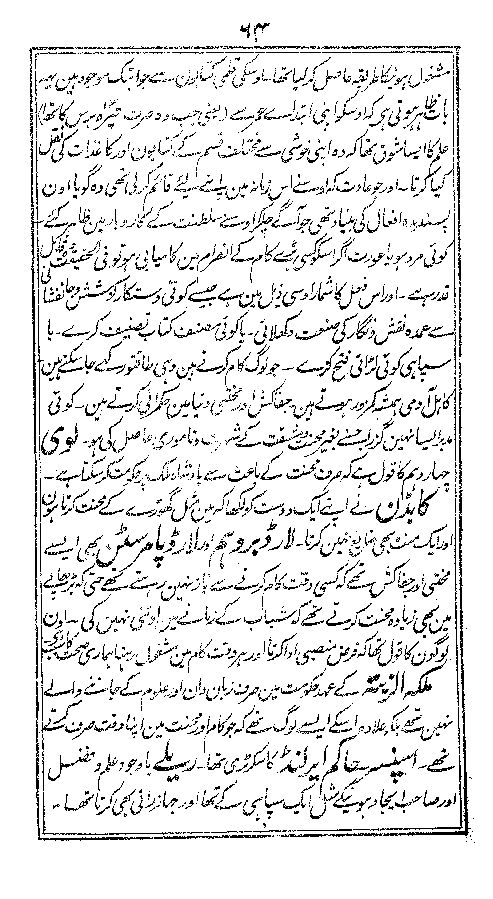 ۶۴
مشغول ہونیکا طریقہ حاصل کر لیا تھا۔ اوسکی قلمی کتابون سے جو ابتک موجود ہین یہہ
بات ظاہر ہوتی ہی کہ اوسکو اپنی ابتداے عمر سے (یعنی جب وہ صرف برس کا تھا)
علم کا ایسا شوق تھا کہ وہ اپنی خوشی سے مختلف قسم کے کتابون اور کاغذات کی نقل
کیا کرتا۔ اور جو عادت کہ اوسنے اس زمانہ مین اپنے لیئے قائم کر لی تھی وہ گویا اون
پسندیدہ افعال کی بنیاد تھی جو آگے چلکر اوسنے سلطنت کے کاروبار مین ظاہر کئے
کوئی مرد ہو یا عورت اگر اسکو کسی بڑے کام کے انصرام مین کامیابی ہو تو فی الحقیقت قابل
قدر ہے۔ اور اس فعل کا شمار اوسی ذیل مین ہے جیسے کوئی دستکار کوشش و جانفشانی
سے عمدہ نقش و نگار کی صنعت دکھلائی۔ یا کوئی مصنف کتاب تصنیف کرے۔ یا
سپاہی کوئی لڑائی فتح کرے۔ جو لوگ کام کرتے ہین وہی طاقتور کہے جا سکتے ہین
کاہل آدمی ہمیشہ کمزور ہوتے ہین۔ جفاکش اور محنتی دنیا مین حکمرانی کرتے ہین۔ کوئی
مدبر ایسا نہین گزرا جسنے بغیر محنت و مشقت کے شہرت و ناموری حاصل کی ہو۔ لوی
چہاردہم کا قول ہے کہ صرف محنت کے باعث سے بادشاہ ملک پر حکومت کر سکتا ہے۔
کابڈن نے اپنے ایک دوست کو لکھا کہ مین مثل گھوڑے کے محنت کرتا ہون
اور ایک منٹ بھی ضایع نہین کرتا۔ لارڈ بروہیم اور لارڈ پامرسٹن بھی ایسے
محنتی اور جفاکش تھے کہ کسی وقت کام کرنے سے باز نہین رہتے تھے حتی کہ بڑھاپے
مین بھی زیادہ محنت کرتے تھے کہ شباب کے زمانے مین اوتنی نہین کی۔ اون
لوگون کا قول تھا کہ فرض منصبی ادا کرنا اور ہر وقت کام مین مشغول رہنا ہماری صحت کا
ملکہ الزیبتھ کے عہد حکومت مین صرف زبان دان اور علوم کے جاننے والے
نہین تھے بلکہ علاوہ اسکے ایسے لوگ تھے کہ جو کام اور محنت مین اپنا وقت صرف کرتے
تھے۔ اسپنسر حاکم ایرلنڈ کا سکرٹری تھا۔ ریلے باوجود علم و فضل
اور صاحب ایجاد ہونیکے مثل ایک سپاہی کے تھا اور جہاز رانی بھی کرتا تھا۔